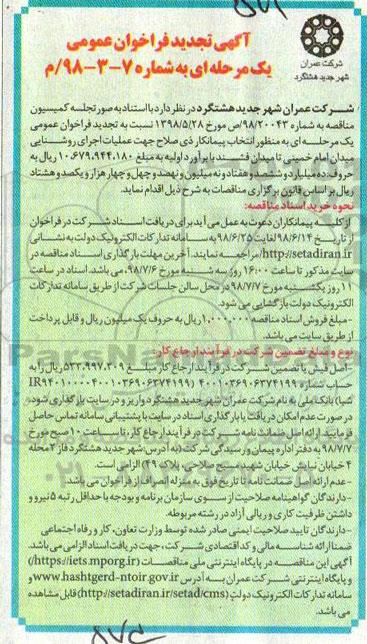 شرکت عمران
شهر جدید هشتگرد
آگهی تجدید فراخوان عمومی
یک مرحله ای به شماره ۷-۳-۹۸/م
شرکت عمران شهر جدید هشتگرد در نظر دارد با استناد به صورتجلسه کمیسیون
مناقصه به شماره ۹۸/۲۰۰۴۳/ص مورخ ۱۳۹۸/۵/۲۸ نسبت به تجدید فراخوان عمومی
یک مرحله ای به منظور انتخاب پیمانکار ذی صلاح جهت عملیات اجرای روشنایی
میدان امام خمینی تا میدان فشند با برآورد اولیه به مبلغ ۱۰,۶۷۹,۹۴۴,۱۸۰ ریال به
حروف ده میلیارد و ششصد و هفتاد و نه میلیون و نهصد و چهل و چهار هزار و یکصد و هشتاد
ریال بر اساس قانون برگزاری مناقصات به شرح ذیل اقدام نماید.
نحوه خرید اسناد مناقصه:
از کلیه پیمانکاران دعوت به عمل می آید برای دریافت اسناد شرکت در فراخوان
از تاریخ ۹۸/۶/۱۴ لغایت ۹۸/۶/۲۵ به سامانه تدارکات الکترونیک دولت به نشانی
http://setadiran.ir مراجعه نمایند. آخرین مهلت بارگذاری اسناد مناقصه در
سایت مذکور تا ساعت ۱۶:۰۰ روز سه شنبه مورخ ۹۸/۷/۶، می باشد. اسناد در ساعت
۱۱ روز یکشنبه مورخ ۹۸/۷/۷ در محل سالن جلسات شرکت از طریق سامانه تدارکات
الکترونیک دولت بازگشایی می شود.
-مبلغ فروش اسناد مناقصه ۱,۰۰۰,۰۰۰ ریال به حروف یک میلیون ریال و قابل پرداخت
از طریق سایت می باشد.
نوع و مبلغ تضمین شرکت در فرآیند ارجاع کار
-اصل فیش یا تضمین شرکت در فرآیند ارجاع کار مبلغ ۵۳۳,۹۹۷,۲۰۹ ریال را به
حساب شماره ۴۰۰۱۰۳۶۹۰۶۳۷۴۱۹۹
شبا) بانک ملی به نام شرکت عمران شهر جدید هشتگرد واریز و در سایت بارگذاری شود و
در صورت عدم امکان دریافت یا بارگذاری اسناد در سایت با پشتیبانی سامانه تماس حاصل
فرمایند. ارائه اصل ضمانت نامه شرکت در فرآیند ارجاع کار، تا ساعت ۱۰ صبح مورخ
۹۸/۷/۷ به دفتر اداره پیمان و رسیدگی شرکت (به آدرس: شهر جدید هشتگرد فاز ۲ محله
۴ خیابان نیایش خیابان شهید مسیح صلاحی، پلاک ۶۹) الزامی است.
-عدم ارائه اصل ضمانت نامه تا تاریخ فوق به منزله انصراف از فراخوان می باشد.
-دارندگان گواهینامه صلاحیت از سوی سازمان برنامه و بودجه با حداقل رتبه ۵ نیرو و
داشتن ظرفیت کاری و ریالی آزاد در رشته مربوطه.
-دارندگان تایید صلاحیت ایمنی صادر شده توسط وزارت تعاون، کار و رفاه اجتماعی
ضمنا ارائه شناسه ملی و کد اقتصادی شرکت، جهت دریافت اسناد الزامی می باشد.
آگهی این مناقصه در پایگاه اینترنتی ملی مناقصات (https://iets.mporg.ir)
و پایگاه اینترنتی شرکت عمران به آدرس www.hashtgerd-ntoir.gov.ir و
سامانه تدارکات الکترونیک دولت (http://setadiran.ir/setad/cms) قابل مشاهده
می باشد.